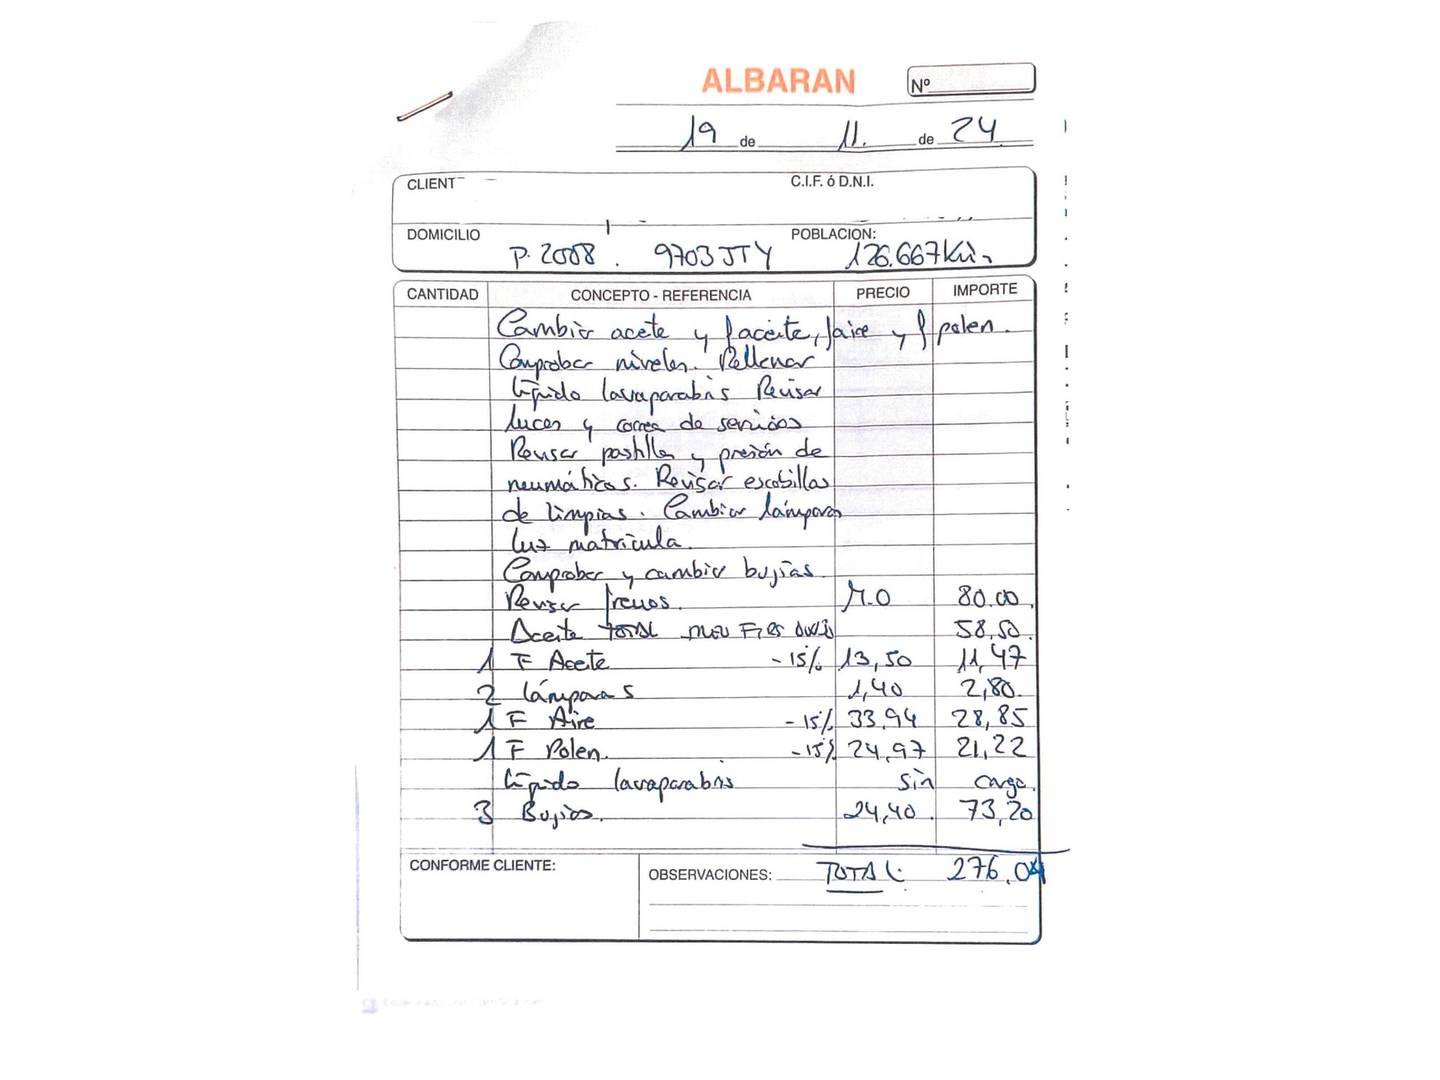 ALBARAN Nº
19 de 11. de 24
CLIENT C.I.F. ó D.N.I.
DOMICILIO POBLACION:
P. 2008. 9703 JTY 126.667 Km
CANTIDAD CONCEPTO - REFERENCIA PRECIO IMPORTE
Cambiar aceite y f aceite, f aire y f polen.
Comprobar niveles. Rellenar
líquido lavaparabris Revisar
luces y correa de servicios
Revisar pastillas y presión de
neumáticos. Revisar escobillas
de limpias. Cambiar lámparas
luz matrícula.
Comprobar y cambiar bujías.
Revisar frenos. M.O 80.00.
Aceite TOTAL INEO FIRST 0W30 58,50.
1 F Aceite -15% 13,50 11,47
2 lámparas 1,40 2,80.
1 F Aire -15% 33.94 28,85
1 F Polen. -15% 24,97 21,22
líquido lavaparabris sin cargo.
3 Bujías. 24,40. 73,20
CONFORME CLIENTE: OBSERVACIONES: TOTAL: 276.04